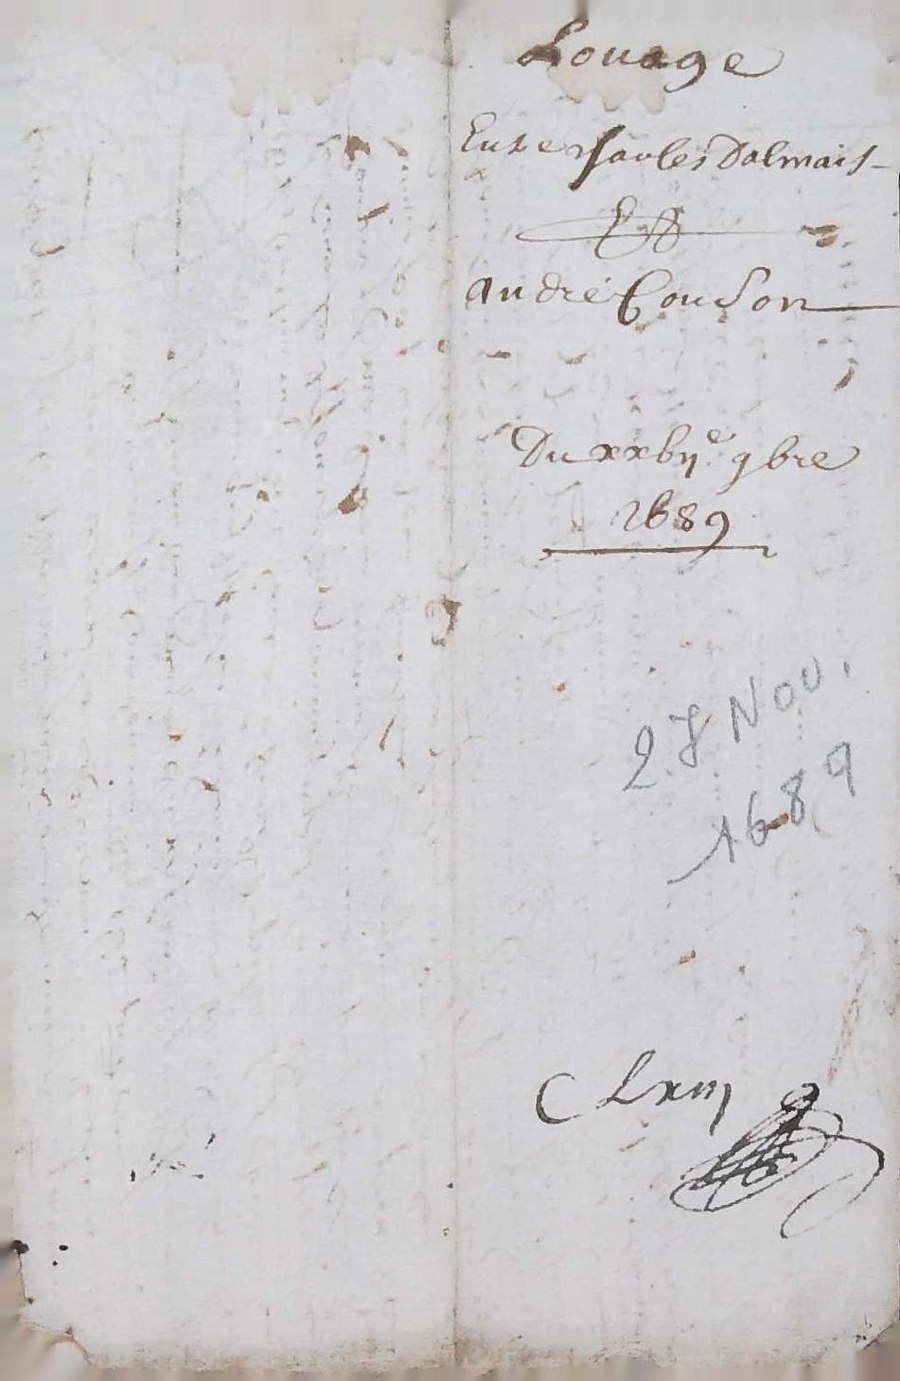 Louage
Entre Charles Dalmais
Et
André Couson
Du xxbije 9bre
1689
27 Nov.
1689
C Lxiij